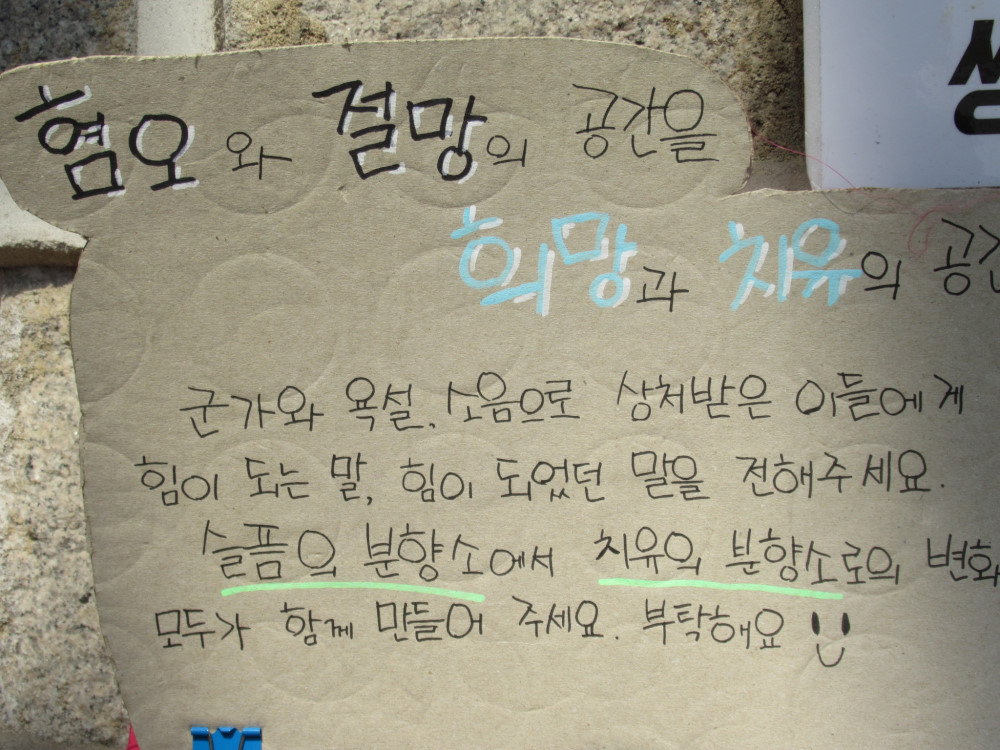 혐오와 절망의 공간을
희망과 치유의 공간
군가와 욕설. 소음으로 상처받은 이들에게
힘이 되는 말, 힘이 되었던 말을 전해주세요.
슬픔의 분향소에서 치유의 분향소로의 변화
모두가 함께 만들어 주세요. 부탁해요